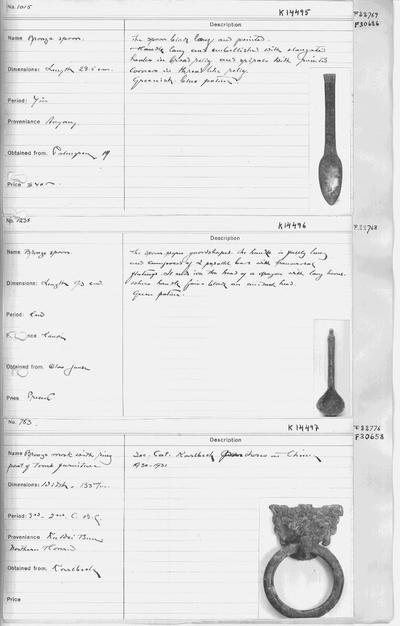 No. 1015
K14495
F22767
F30686
Description
Name Bronze spoon.
The spoon blade long and pointed.
Handle long and embellished with elongated
in broad relief and spirals with pointed
corners in thread like relief.
Dimensions: Length 28.5 cm.
Period: Yin
Provenance Anyang.
Obtained from. Palmgren 19
Price
No. 1235
K14496
F.22768
Description
Name Bronze spoon.
The spoon proper gourdshaped. The handle is fairly long
and composed of 2 parallel bars with transversal
flutings. It ends in the head of a dragon with long horns.
Where handle joins blade an animal head.
Green patina.
Dimensions: Length
Period: Han
Obtained from.
Price Present
No. 763
K14497
F22776
F30658
Description
Name Bronze mask with ring
part of Tomb furniture
See Cat. Karlbeck in China
1930-1931
Dimensions: Width
Period: 3rd - 2nd C. B.C.
Provenance
Northern Honan
Obtained from. Karlbeck
Price